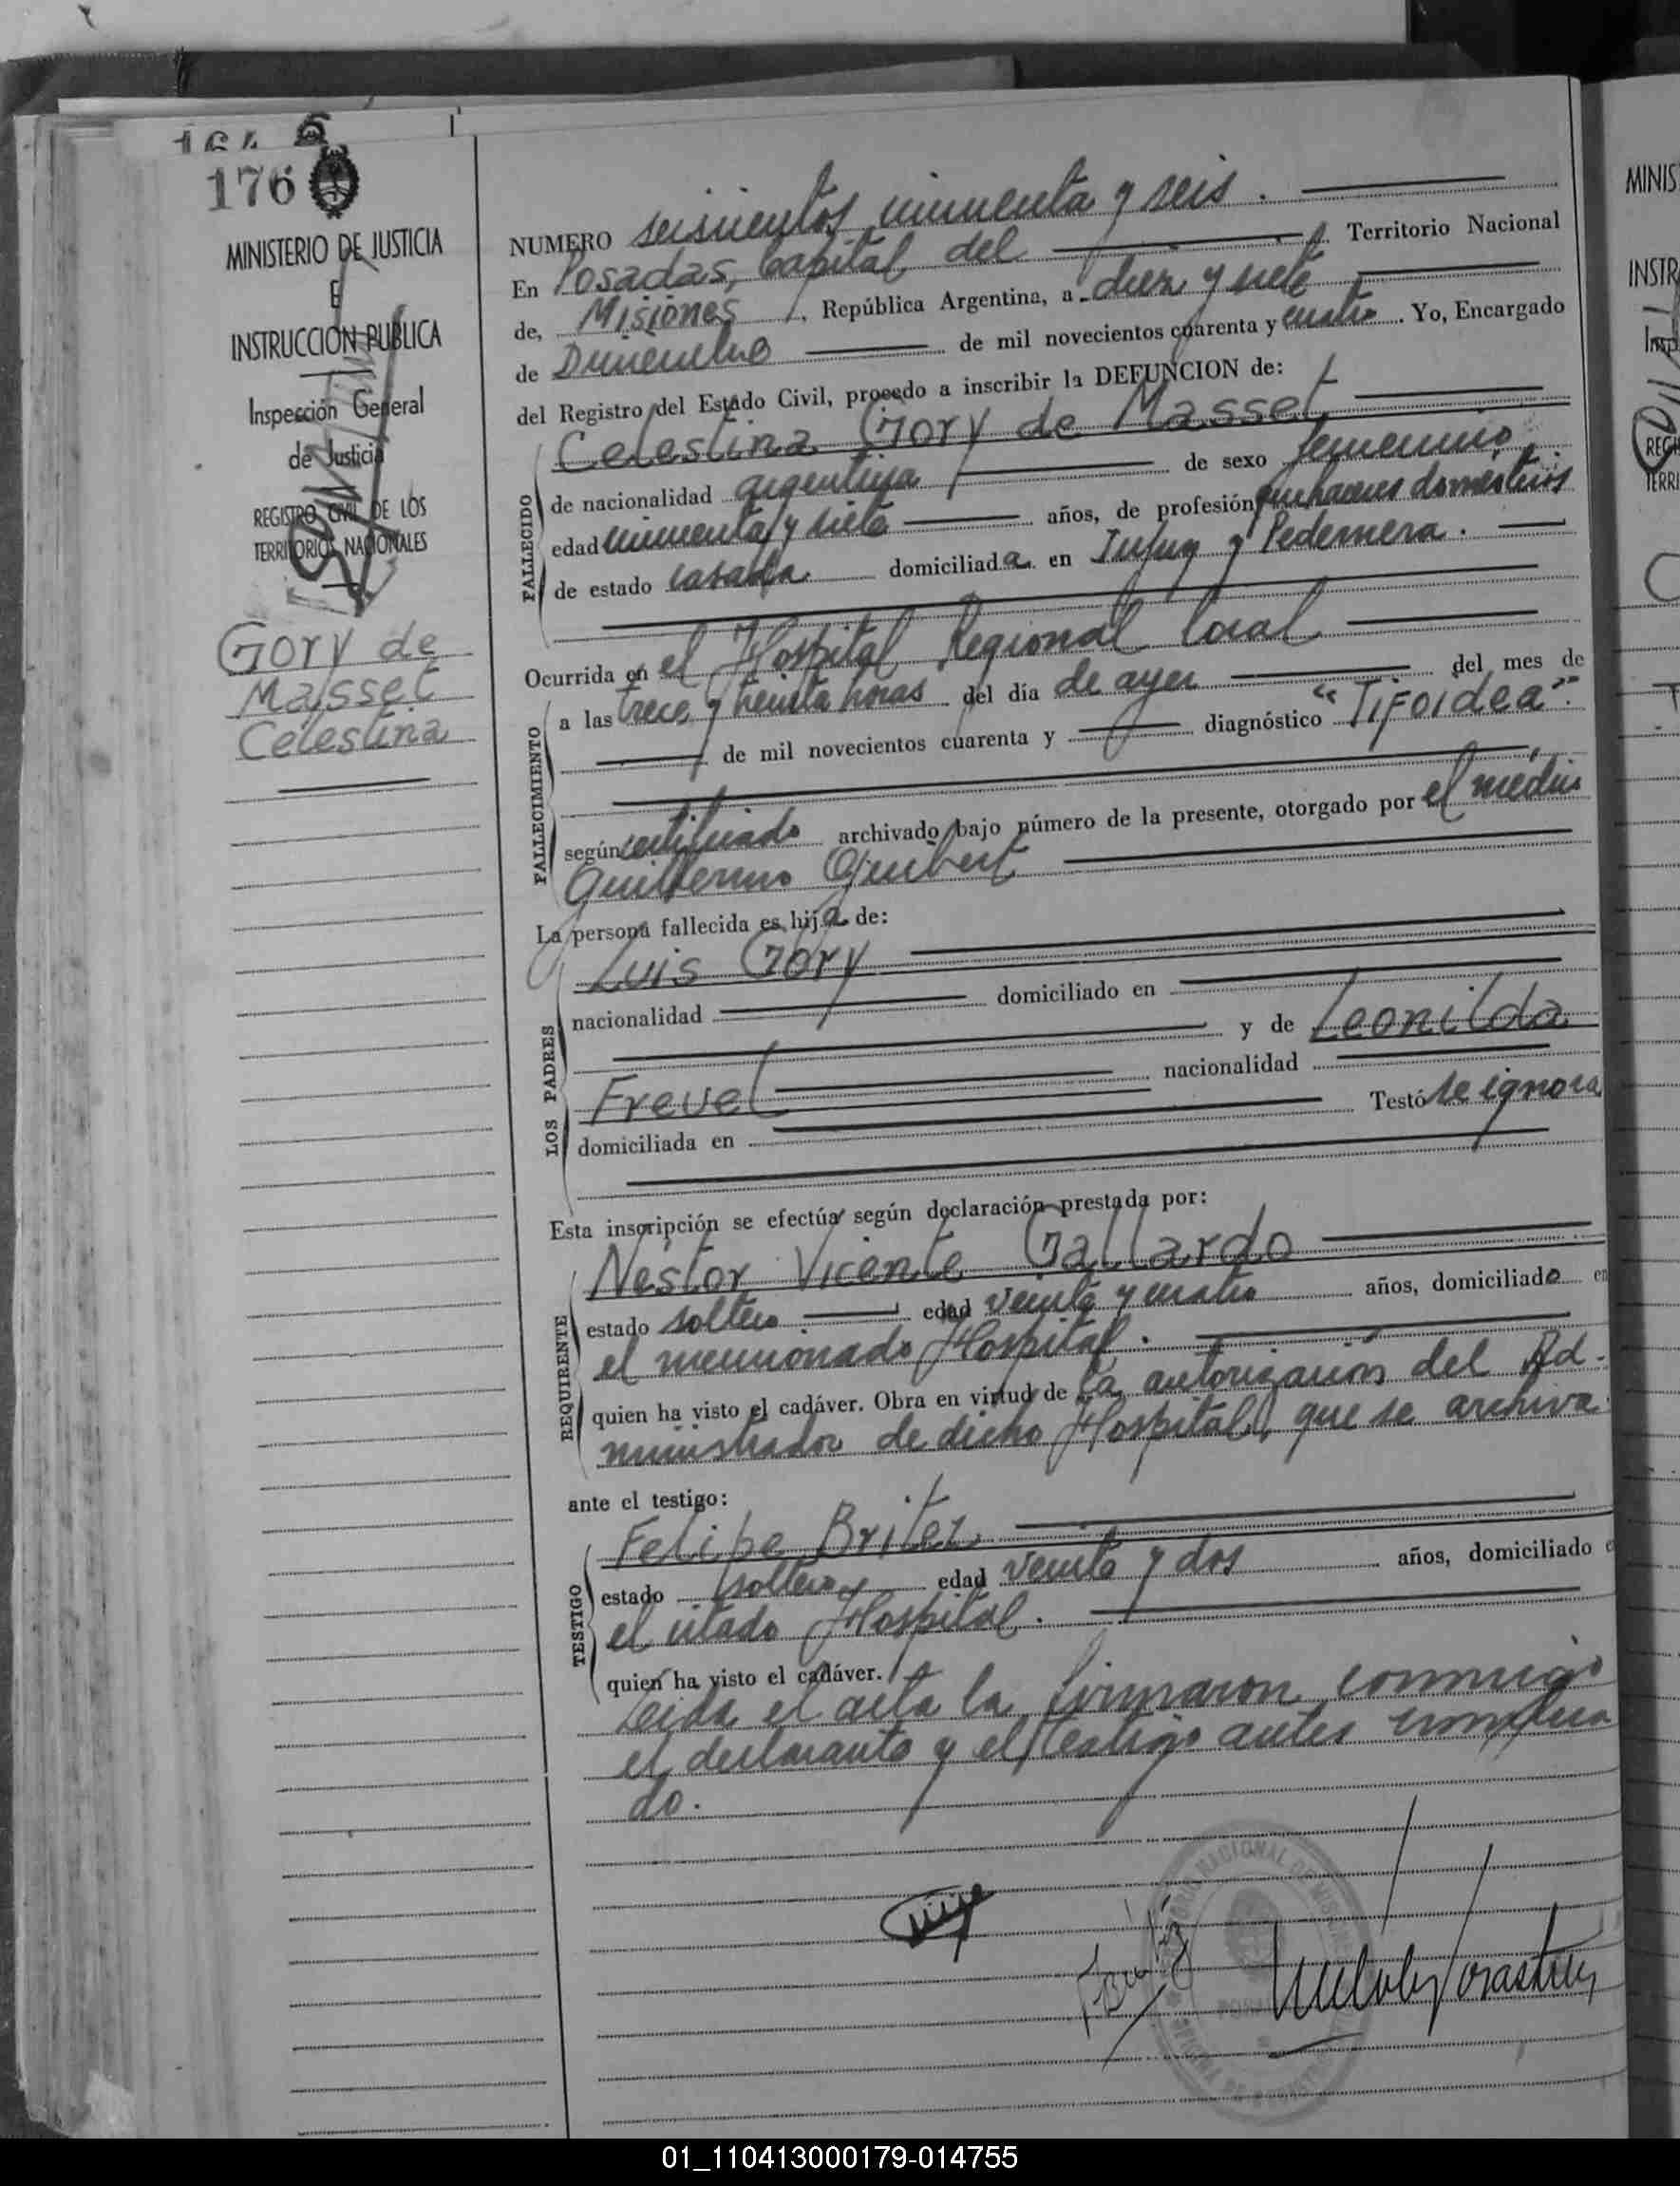 164
176
MINISTERIO DE JUSTICIA
E
INSTRUCCION PUBLICA
Inspección General
de Justicia
REGISTRO CIVIL DE LOS
TERRITORIOS NACIONALES
Gory de
Masset
Celestina
NUMERO seiscientos cincuenta y seis.
En Posadas, Capital del Territorio Nacional
de, Misiones, República Argentina, a diez y siete
de Diciembre de mil novecientos cuarenta y cuatro. Yo, Encargado
del Registro del Estado Civil, procedo a inscribir la DEFUNCION de:
FALLECIDO
Celestina Gory de Masset
de nacionalidad argentina de sexo femenino,
edad cincuenta y siete años, de profesión quehaceres domésticos
de estado casada domiciliada en Jujuy y Pedernera.
Ocurrida en el Hospital Regional local
FALLECIMIENTO
a las trece y treinta horas del día de ayer del mes de
de mil novecientos cuarenta y diagnóstico "Tifoidea".
según certificado archivado bajo número de la presente, otorgado por el médico
Guillermo
La persona fallecida es hija de:
LOS PADRES
Luis Gory
nacionalidad domiciliado en
y de Leonilda
Frevet nacionalidad
domiciliada en Testó se ignora
Esta inscripción se efectúa según declaración prestada por:
REQUIRENTE
Nestor Vicente Gallardo
estado soltero edad veinte y cuatro años, domiciliado en
el mencionado Hospital.
quien ha visto el cadáver. Obra en virtud de la autorización del Ad-
ministrador de dicho Hospital, que se archiva.
ante el testigo:
TESTIGO
Felipe Britez
estado soltero edad veinte y dos años, domiciliado e
el citado Hospital.
quien ha visto el cadáver.
Leida el acta la firmaron conmigo
el declarante y el testigo antes nombra
do.
MINIS
INSTR
REGI
TERRI
01_110413000179-014755